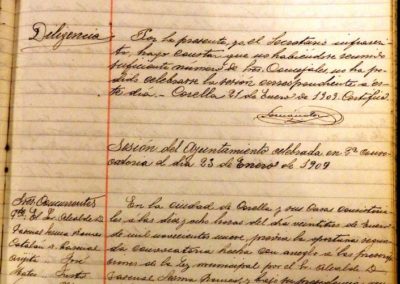 Diligencia
Por la presente, yo el Secretario infrascri-
to, hago constar que no habiéndose reunido
suficiente número de Sres Concejales no ha po-
dido celebrarse la sesión correspondiente a es-
te día.- Corella 21 de Enero de 1909. Certifico.
Sesión del Ayuntamiento celebrada en 2ª convo-
catoria el día 23 de Enero de 1909
Sres Concurrentes
En la ciudad de Corella y sus Casas Consistoria-
les a las diez y ocho horas del día veintitres de Enero
de mil novecientos nueve, previa la oportuna segun-
da convocatoria hecha con arreglo a las prescrip-
ciones de la Ley municipal por el Sr Alcalde D
Catalán
José
Mateo Justo